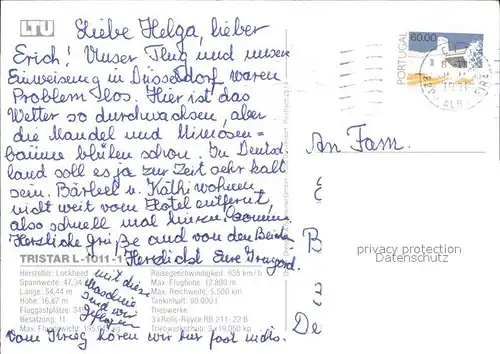 LTU
Liebe Helga, lieber
Erich! Unser Flug und unsere
Einweisung in Düsseldorf waren
Problemlos. Hier ist das
Wetter so durchwachsen, aber
die Mandel und Mimosen=
bäume blühen schon. In Deutsch
land soll es ja zur Zeit sehr kalt
sein. Bärbel u. Käthi wohnen
nicht weit vom Hotel entfernt,
also schnell mal hinein
Herzliche Grüße auch von den Beiden
Herzlichst Eure
TRISTAR L-1011-1
Hersteller: Lockheed
Spannweite: 47,34
Länge: 54,44 m
Höhe: 16,87 m
Fluggastplätze:
Besatzung: 11
Max. Fluggewicht:
Reisegeschwindigkeit: 935 km/h
Max. Flughöhe: 12.800 m
Max. Reichweite: 5.500 km
Tankinhalt: 90.000 l
Triebwerke:
3 x Rolls-Royce RB 211-22 B
Triebwerkschub: 3 x 19.050 kp
mit dieser
Maschine
sind wir
geflogen
Vom Krieg hören wir hier fast nichts.
PORTUGAL
60.00
An Fam.
E
B
3
De
privacy protection
Datenschutz